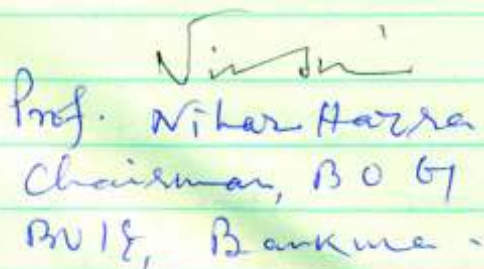 Prof. Nihar Hazra
Chairman, BOG
BUIE, Bankura.